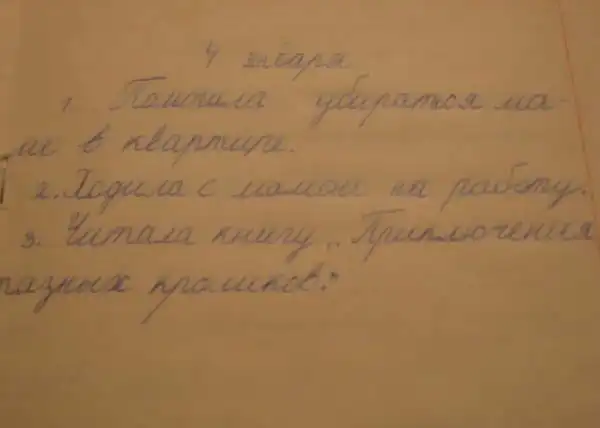 4 января
1. Помогла убиратся ма-
ме в квартире.
2. Ходила с мамой на работу.
3. Читала книгу „Приключения
разных кроликов."